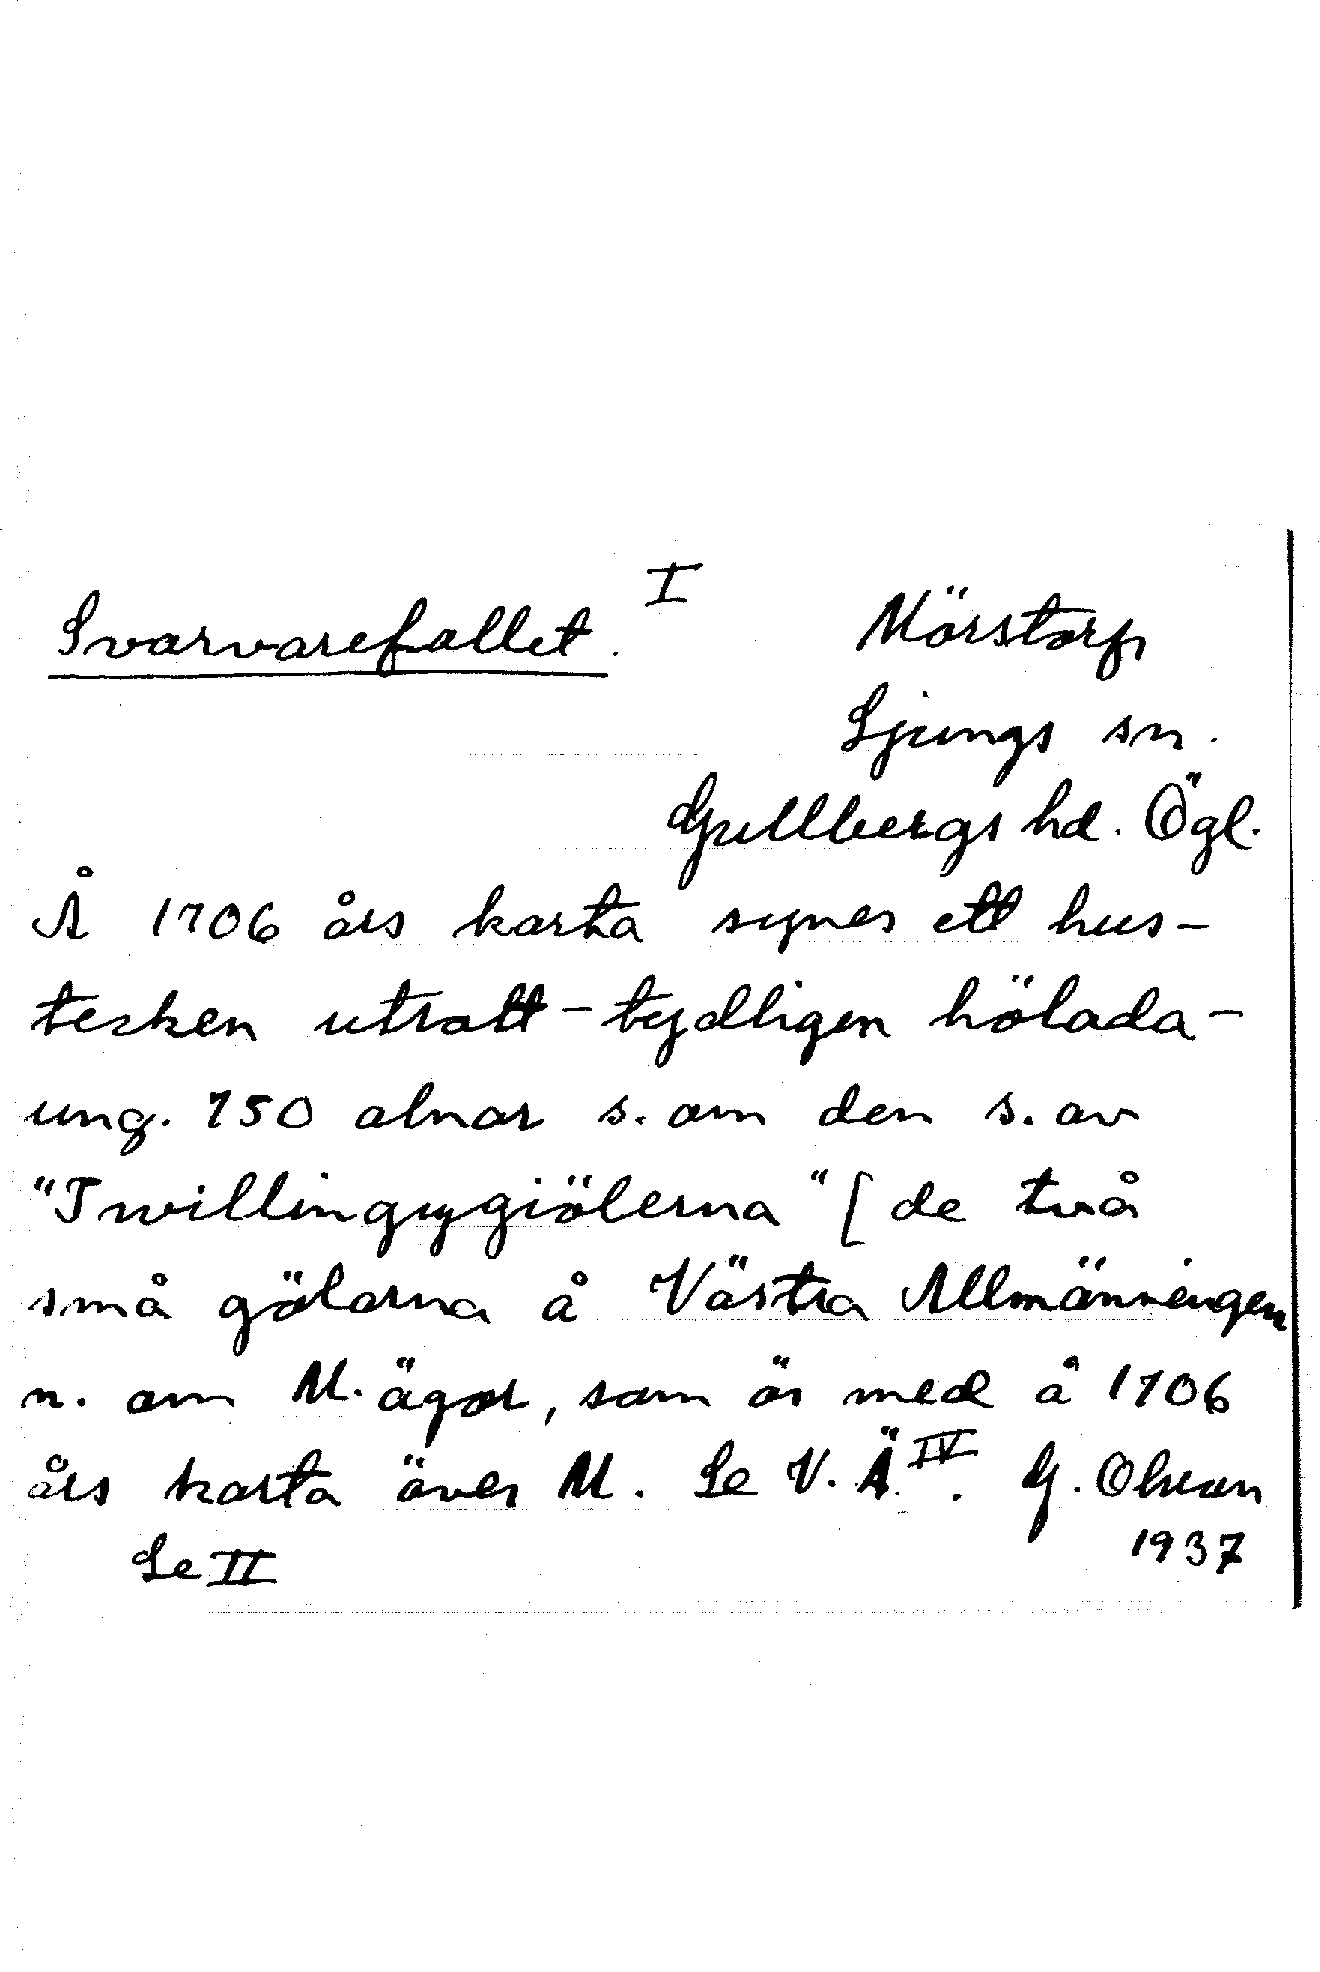 Svarvarefallet. I
Mörstorp
Ljungs sn.
Gullbergs hd. Ögl.
Å 1706 års karta synes ett hus-
tecken utsatt - tydligen hölada -
ung. 750 alnar s. om den s. av
"Twillingzgiölerna" [de två
små gölarna å Västra Allmänningen
n. om M. ägor, som är med å 1706
års karta över M. Se V. Ä IV. G. Olsson
Se II 1937